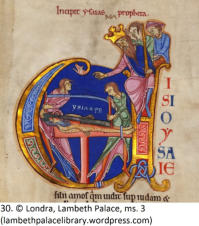 Incipit ysaias propheta.
I
SI
O
Y
SA
IE
filii amos qm uidit sup iudam &
30. © Londra, Lambeth Palace, ms. 3
(lambethpalacelibrary.wordpress.com)